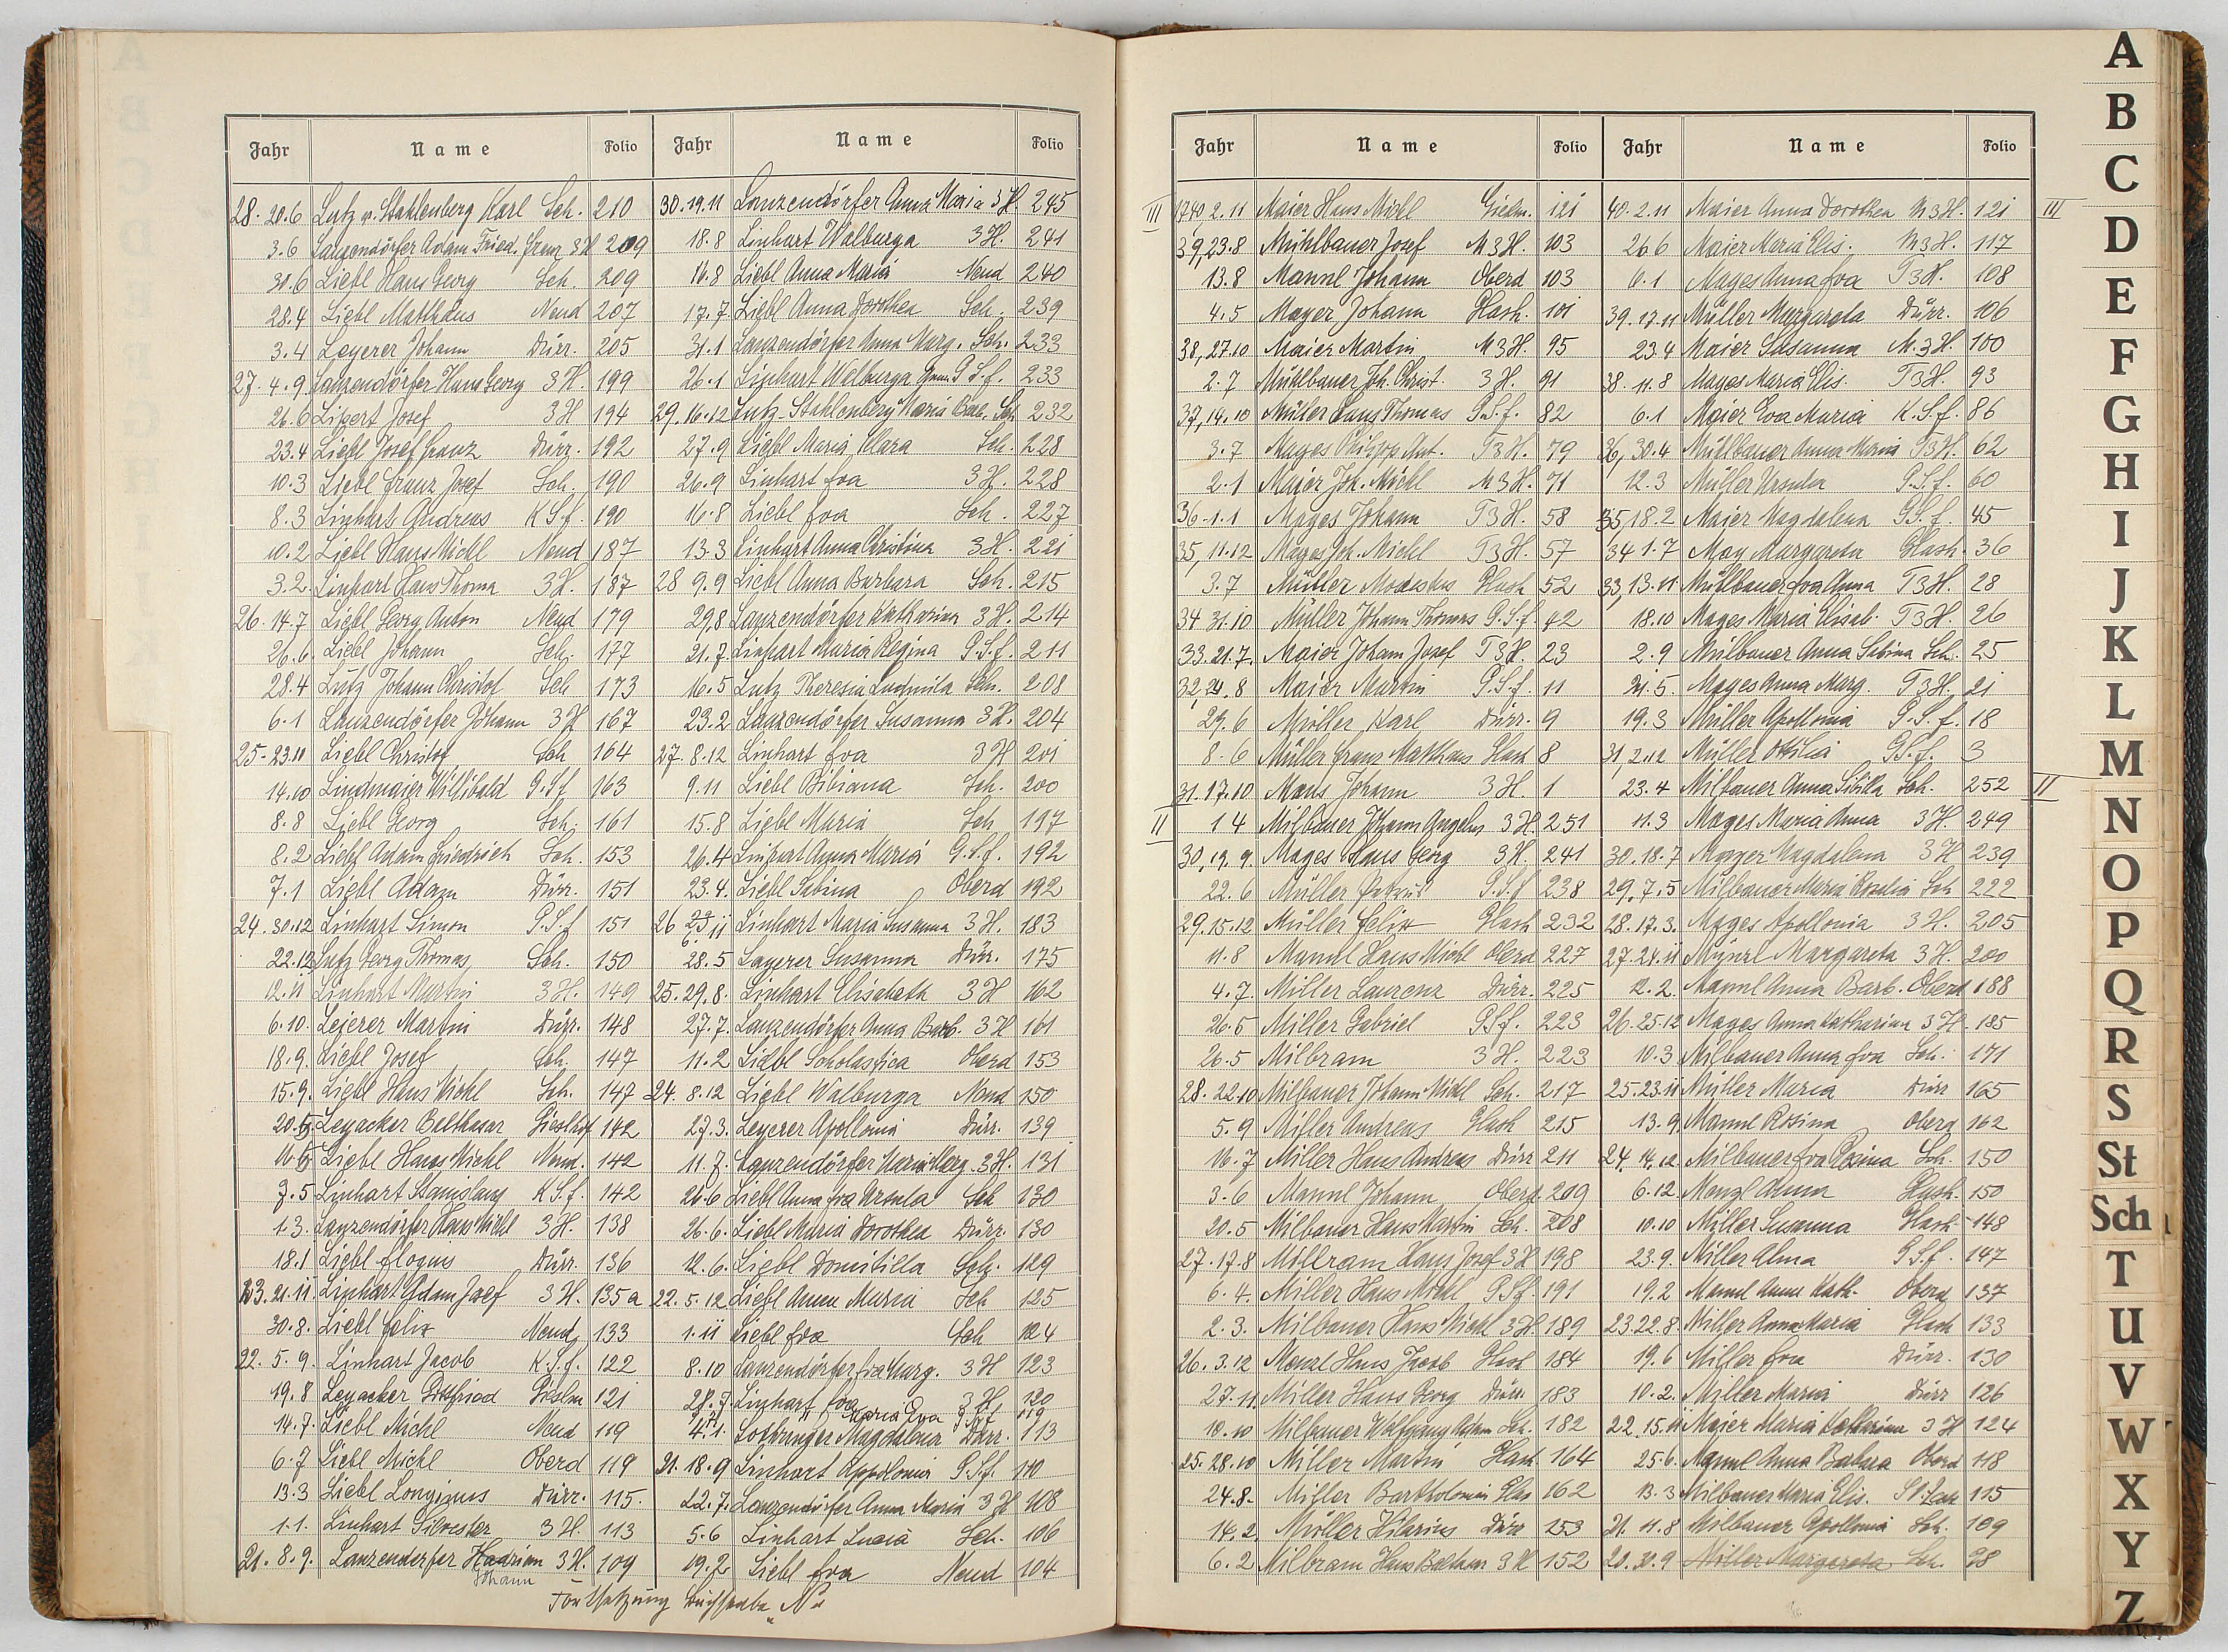 Jahr Name Folio
28. 20.6 Lutz v. Stahlenberg Karl Sch. 210
3.6 Langendörfer Adam Fried. Franz 3H 209
30.6 Liebl Hans Georg Sch. 209
28.4 Liebl Matthäus Neud 207
3.4 Leyerer Johann Dürr. 205
27. 4.9 Lanzendörfer Hans Georg 3H. 199
26.6 Lipert Josef 3H 194
23.4 Liebl Josef Franz Dürr. 192
10.3 Liebl Franz Josef Sch. 190
8.3 Linhart Andreas K.S.f. 190
10.2 Liebl Hans Michl Neud 187
3.2. Linhart Hans Thoma 3H. 187
26. 14.7 Liebl Georg Anton Neud 179
26.6. Liebl Johann Sch. 177
28.4 Lutz Johann Christof Sch 173
6.1 Lanzendörfer Johann 3H 167
25-23.11 Liebl Christof Sch 164
14.10 Lindmaier Willibald G.S.f 163
8.8 Liebl Georg Sch. 161
8.2 Liebl Adam Friedrich Sch. 153
7.1 Liebl Adam Dürr. 151
24. 30.12 Linhart Simon G.S.f 151
22.12 Lutz Georg Thomas Sch. 150
12.11 Linhart Martin 3H. 149
6.10. Lejerer Martin Dürr. 148
18.9. Liebl Josef Sch. 147
15.9. Liebl Hans Michl Sch. 147
20.5 Leyacker Balthasar 142
16.5 Liebl Hans Michl Neud. 142
7.5 Linhart Stanislaus K.S.f. 142
1.3. Lanzendörfer Hans Michl 3H. 138
18.1 Liebl Dürr. 136
23. 21.11 Linhart Adam Josef 3H. 135a
30.8. Liebl Felix Neud 133
22. 5.9. Linhart Jacob K.S.f. 122
19.8 Leyacker Gottfried 121
14.7. Liebl Michl Neud 119
6.7 Liebl Michl Oberd 119
13.3 Liebl Longinus Dürr. 115.
1.1. Linhart Silvester 3H. 113
21. 8.9. Lanzendorfer Hadrian 3H. 109
Johann
Jahr Name Folio
30.19.11 Lanzendörfer Anna Maria 3H. 245
18.8 Linhart Walburga 3H. 241
16.8 Liebl Anna Maria Neud 240
17.7 Liebl Anna Dorothea Sch. 239
31.1 Lanzendörfer Anna Marg. Sch. 233
26.1 Linhart Walburga G.S.f. 233
29.16.12 Lutz-Stahlenberg Maria Barb. Sch. 232
27.9 Liebl Maria Klara Sch. 228
26.9 Linhart Eva 3H. 228
16.8 Liebl Eva Sch. 227
13.3 Linhart Anna Christina 3H. 221
28 9.9 Liebl Anna Barbara Sch. 215
29.8 Lanzendörfer Katharina 3H. 214
21.7. Linhart Maria Regina G.S.f. 211
16.5 Lutz Theresia Ludmila Sch. 208
23.2 Lanzendörfer Susanna 3H. 204
27. 8.12 Linhart Eva 3H 201
9.11 Liebl Bibiana Sch. 200
15.8 Liebl Maria Sch 197
26.4 Linhart Anna Maria G.S.f. 192
23.4. Liebl Sabina Oberd 192
26 Linhart Maria Susanna 3H. 183
28.5 Layerer Susanna Dürr. 175
25. 29.8. Linhart Elisabeth 3H 162
27.7. Lanzendörfer Anna Barb. 3H 161
11.2 Liebl Scholastica Oberd 153
24. 8.12 Liebl Walburga Neud 150
27.3. Leyerer Apollonia Dürr. 139
11.7. Lanzendörfer Maria Marg. 3H. 131
26.6 Liebl Anna Eva Ursula Sch 130
26.6. Liebl Maria Dorothea Dürr. 130
12.6. Liebl Domitilla Sch. 129
22. 5.12 Liebl Anna Maria Sch 125
1.11 Liebl Eva Sch 124
8.10 Lanzendörfer Eva Marg. 3H 123
28.7. Linhart Eva 3H. 120
Maria Eva G.S.f 119
4.1. Lottringer Magdalena Dürr. 113
21. 18.9 Linhart Appolonia G.S.f. 110
22.7. Lanzendörfer Anna Maria 3H 108
5.6 Linhart Lucia Sch. 106
19.2 Liebl Eva Neud 104
Fortsetzung Buchstabe „N"
Jahr Name Folio
III 1740 2.11 Maier Hans Michl 121
39,23.8 Mühlbauer Josef M3H. 103
13.8 Mannl Johann Oberd 103
4.5 Mayer Johann Flash. 101
38,27.10 Maier Martin M3H. 95
2.7 Mühlbauer Joh. Christ. 3H. 91
37,14.10 Müller Hans Thomas G.S.f. 82
3.7 Mages Philipp Ant. T3H. 79
2.1 Maier Joh. Michl M3H. 71
36-1.1 Mages Johann T3H. 58
35,11.12 Mages Joh. Michl T3H. 57
3.7 Müller Modestus Flash 52
34 31.10 Müller Johann Thomas G.S.f. 42
33.21.7. Maier Johann Josef T3H. 23
32,24.8 Maier Martin G.S.f. 11
29.6 Müller Karl Dürr. 9
8.6 Müller Franz Mathias Flash 8
31.17.10 Mans Johann 3H. 1
II 1 4 Milbauer Johann Angelus 3H. 251
30,19.9. Mages Hans Georg 3H. 241
22.6 Müller G.S.f 238
29.15.12 Müller Felix Flash 232
11.8 Mannl Hans Michl Oberd 227
4.7. Miller Laurenz Dürr. 225
26.5 Miller Gabriel G.S.f. 223
26.5 Milbram 3H. 223
28. 22.10 Milbauer Johann Michl Sch. 217
5.9 Miller Andreas Flash 215
16.7 Miller Hans Andreas Dürr 211
3.6 Mannl Johann Oberd. 209
20.5 Milbauer Hans Martin Sch. 208
27.17.8 Millram Hans Josef 3H 198
6.4. Miller Hans Michl G.S.f. 191
2.3. Milbauer Hans Michl 3H. 189
26. 3.12 Menzl Hans Jacob Flash 184
27.11. Miller Hans Georg Dürr. 183
10.10 Milbauer Wolfgang Adam Sch. 182
25. 28.10 Miller Martin Flash 164
24.8. Miller Bartholomäi Flas 162
14.2. Müller Hilarius Dürr 153
6.2 Milbram Hans Balthasar 3H 152
Jahr Name Folio
40.2.11 Maier Anna Dorothea M3H. 121 III
26.6 Maier Maria Elis. M3H. 117
6.1 Mages Anna Eva T3H. 108
39.17.11 Müller Margareta Dürr. 106
23.4 Maier Susanna M.3H. 100
38. 11.8 Mages Maria Elis. T3H. 93
6.1 Maier Eva Maria K.S.f. 86
36, 30.4 Mühlbauer Anna Maria T3H. 62
12.3 Müller Ursula G.S.f. 60
35,18.2 Maier Magdalena G.S.f. 45
34 1.7 May Margareta Flash. 36
33,13.11 Mühlbauer Eva Anna T3H. 28
18.10 Mages Maria Elisab. T3H. 26
2.9 Mülbauer Anna Sabina Sch. 25
21.5. Mages Anna Marg. T3H. 21
19.3 Müller Apollonia G.S.f. 18
31,2.12 Müller Ottilia G.S.f. 3
23.4 Milbauer Anna Sibilla Sch. 252 II
11.3 Mages Maria Anna 3H. 249
30.18.7 Mayer Magdalena 3H 239
29.7.5 Milbauer Maria Rosalia Sch 222
28.17.3. Mages Apollonia 3H. 205
27.24.11 Münzl Margareta 3H. 200
12.2. Mannl Anna Barb. Oberd 188
26.25.12 Mages Anna Katharina 3H. 185
10.3 Milbauer Anna Eva Sch. 171
25.23.11 Müller Maria Dürr 165
13.9. Mannl Rosina Oberd 162
24. 14.12. Milbauer Eva Rosina Sch. 150
6.12. Menzl Anna Flash. 150
10.10 Miller Susanna Flash 148
23.9. Miller Alma G.S.f. 147
19.2 Mannl Anna Kath. Oberd 137
23.22.8. Miller Anna Maria Flash 133
19.6 Miller Eva Dürr. 130
10.2. Miller Maria Dürr 126
22.15.11 Majer Maria Katharina 3H 124
25.6. Mannl Anna Barbara Oberd 118
13.3 Milbauer Maria Elis. 115
21. 11.8 Milbauer Apollonia Sch. 109
20.30.9 Miller Margareta Sch. 98
A
B
C
D
E
F
G
H
I
J
K
L
M
N
O
P
Q
R
S
St
Sch
T
U
V
W
X
Y
Z